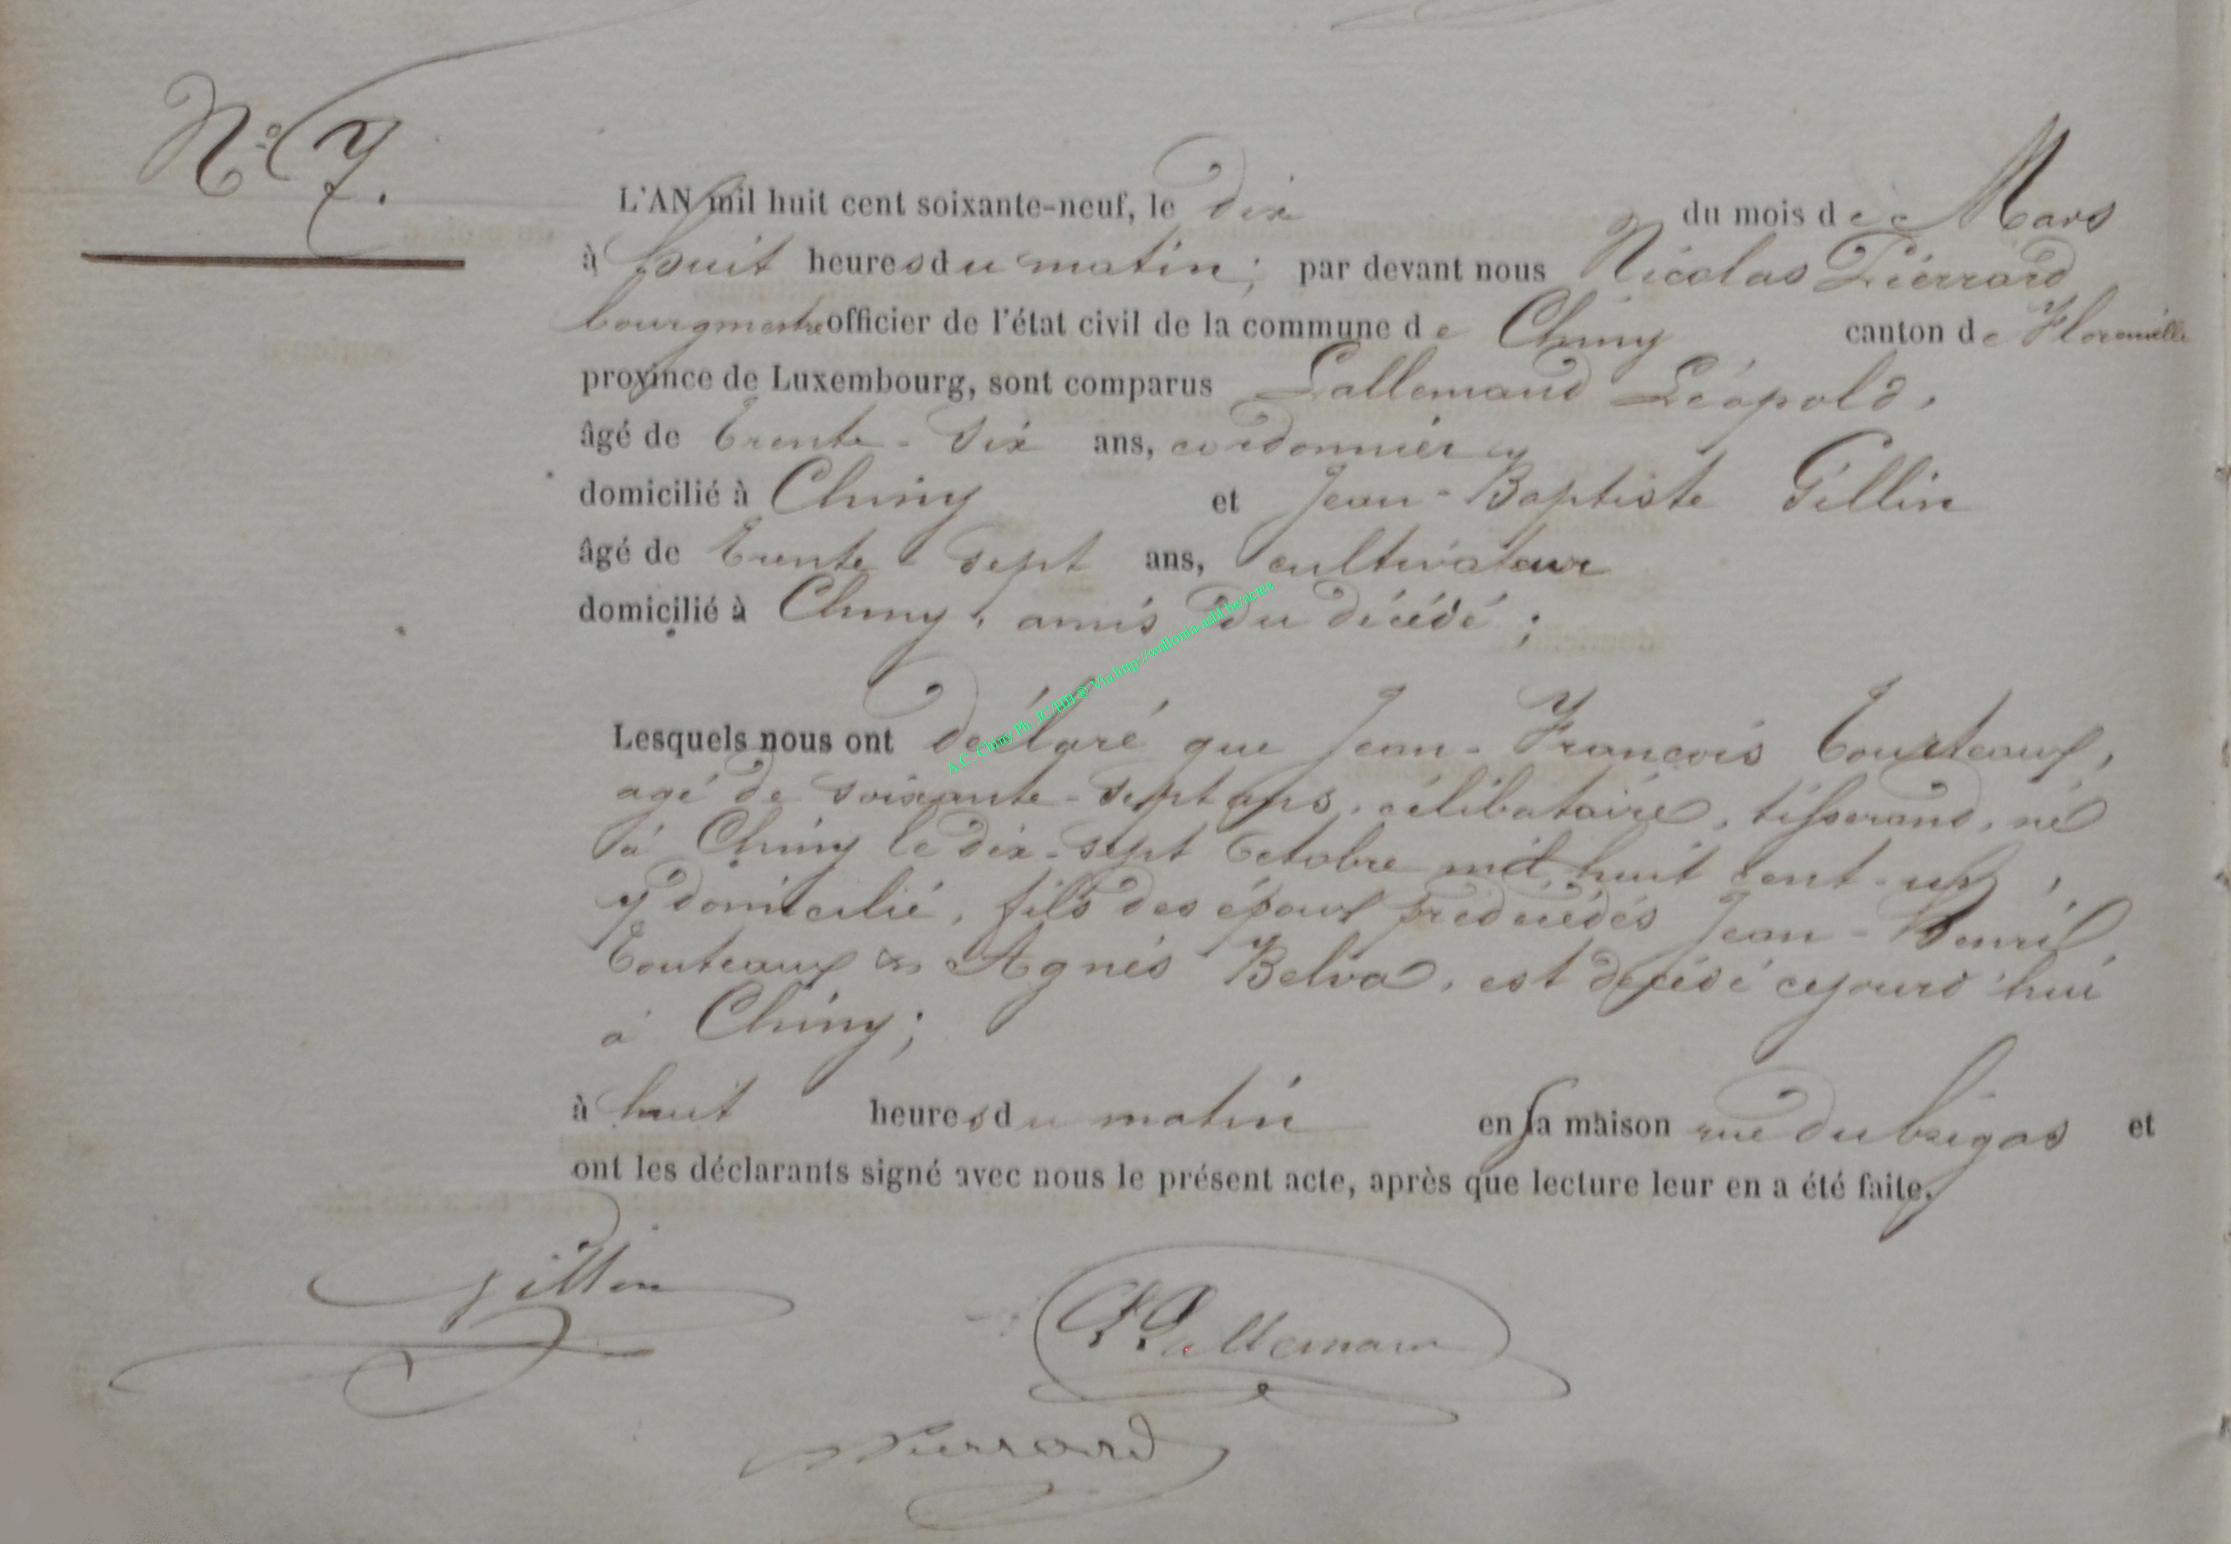 N° 7.
L'AN mil huit cent soixante-neuf, le dix du mois de Mars
à huit heures du matin; par devant nous Nicolas Pierrard
bourgmestre officier de l'état civil de la commune de Chiny canton de Florenville
province de Luxembourg, sont comparus Lallemand Léopold,
âgé de trente-six ans, cordonnier
domicilié à Chiny et Jean-Baptiste Gillin
âgé de trente-sept ans, cultivateur
domicilié à Chiny, amis du décédé;
A.C. Chiny Ph. JC/HB @ Via http://wallonia-asbl.be/actes
Lesquels nous ont déclaré que Jean-François Tourteaux,
agé de soixante-sept ans, célibataire, tisserand, né
à Chiny le dix-sept Octobre mil huit cent-un,
y domicilié, fils des époux prédécédés Jean-Henri
Touteaux & Agnès Belva, est décédé cejourd'hui
à Chiny;
à huit heures du matin en sa maison rue du brigas et
ont les déclarants signé avec nous le présent acte, après que lecture leur en a été faite.
Gillin
Lallemand
Pierrard